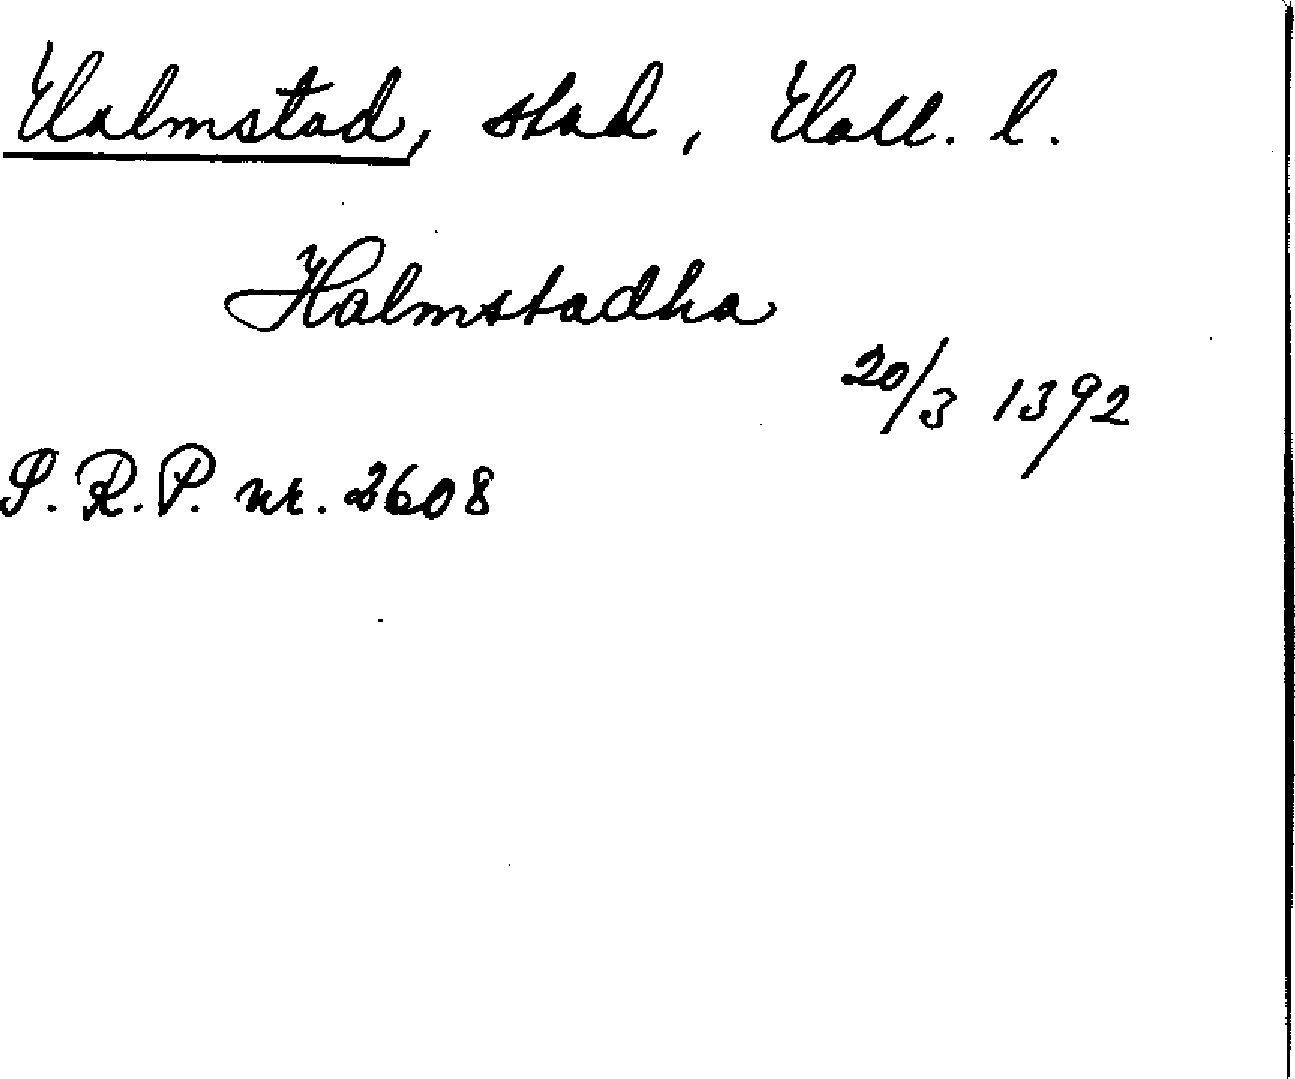 Halmstad, stad, Hall. l.
Halmstadha
20/3 1392
S.R.P. nr. 2608